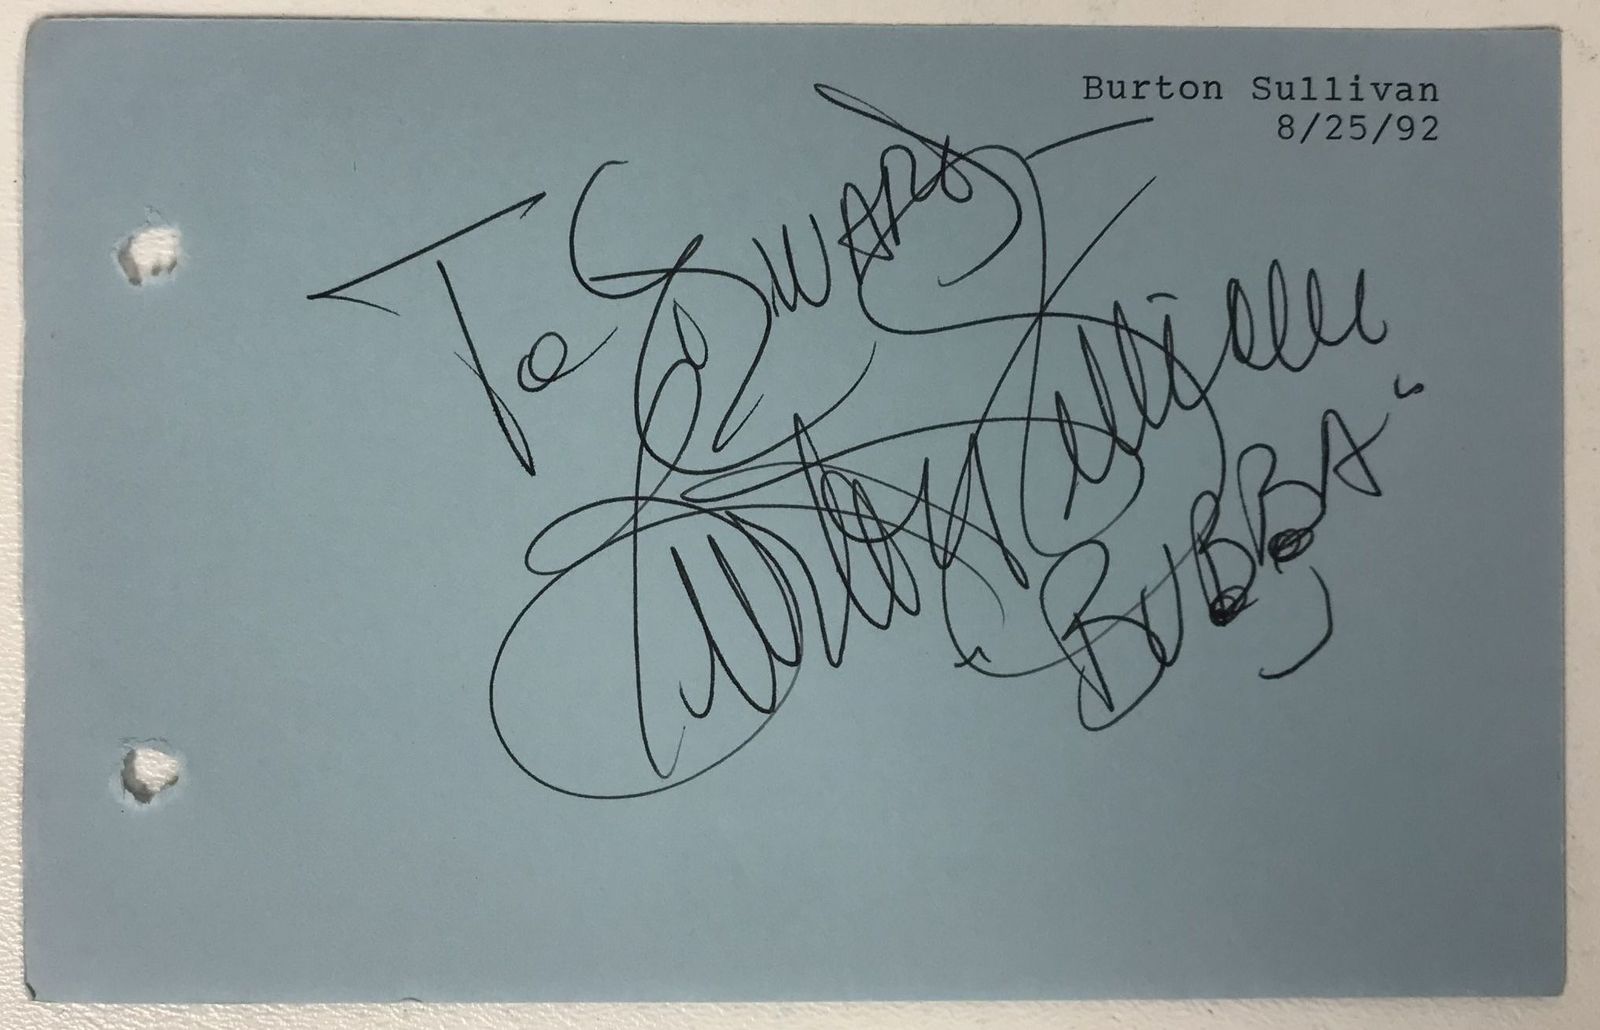 Burton Sullivan
8/25/92
To Edward
Burton Sullivan
BUBBA"